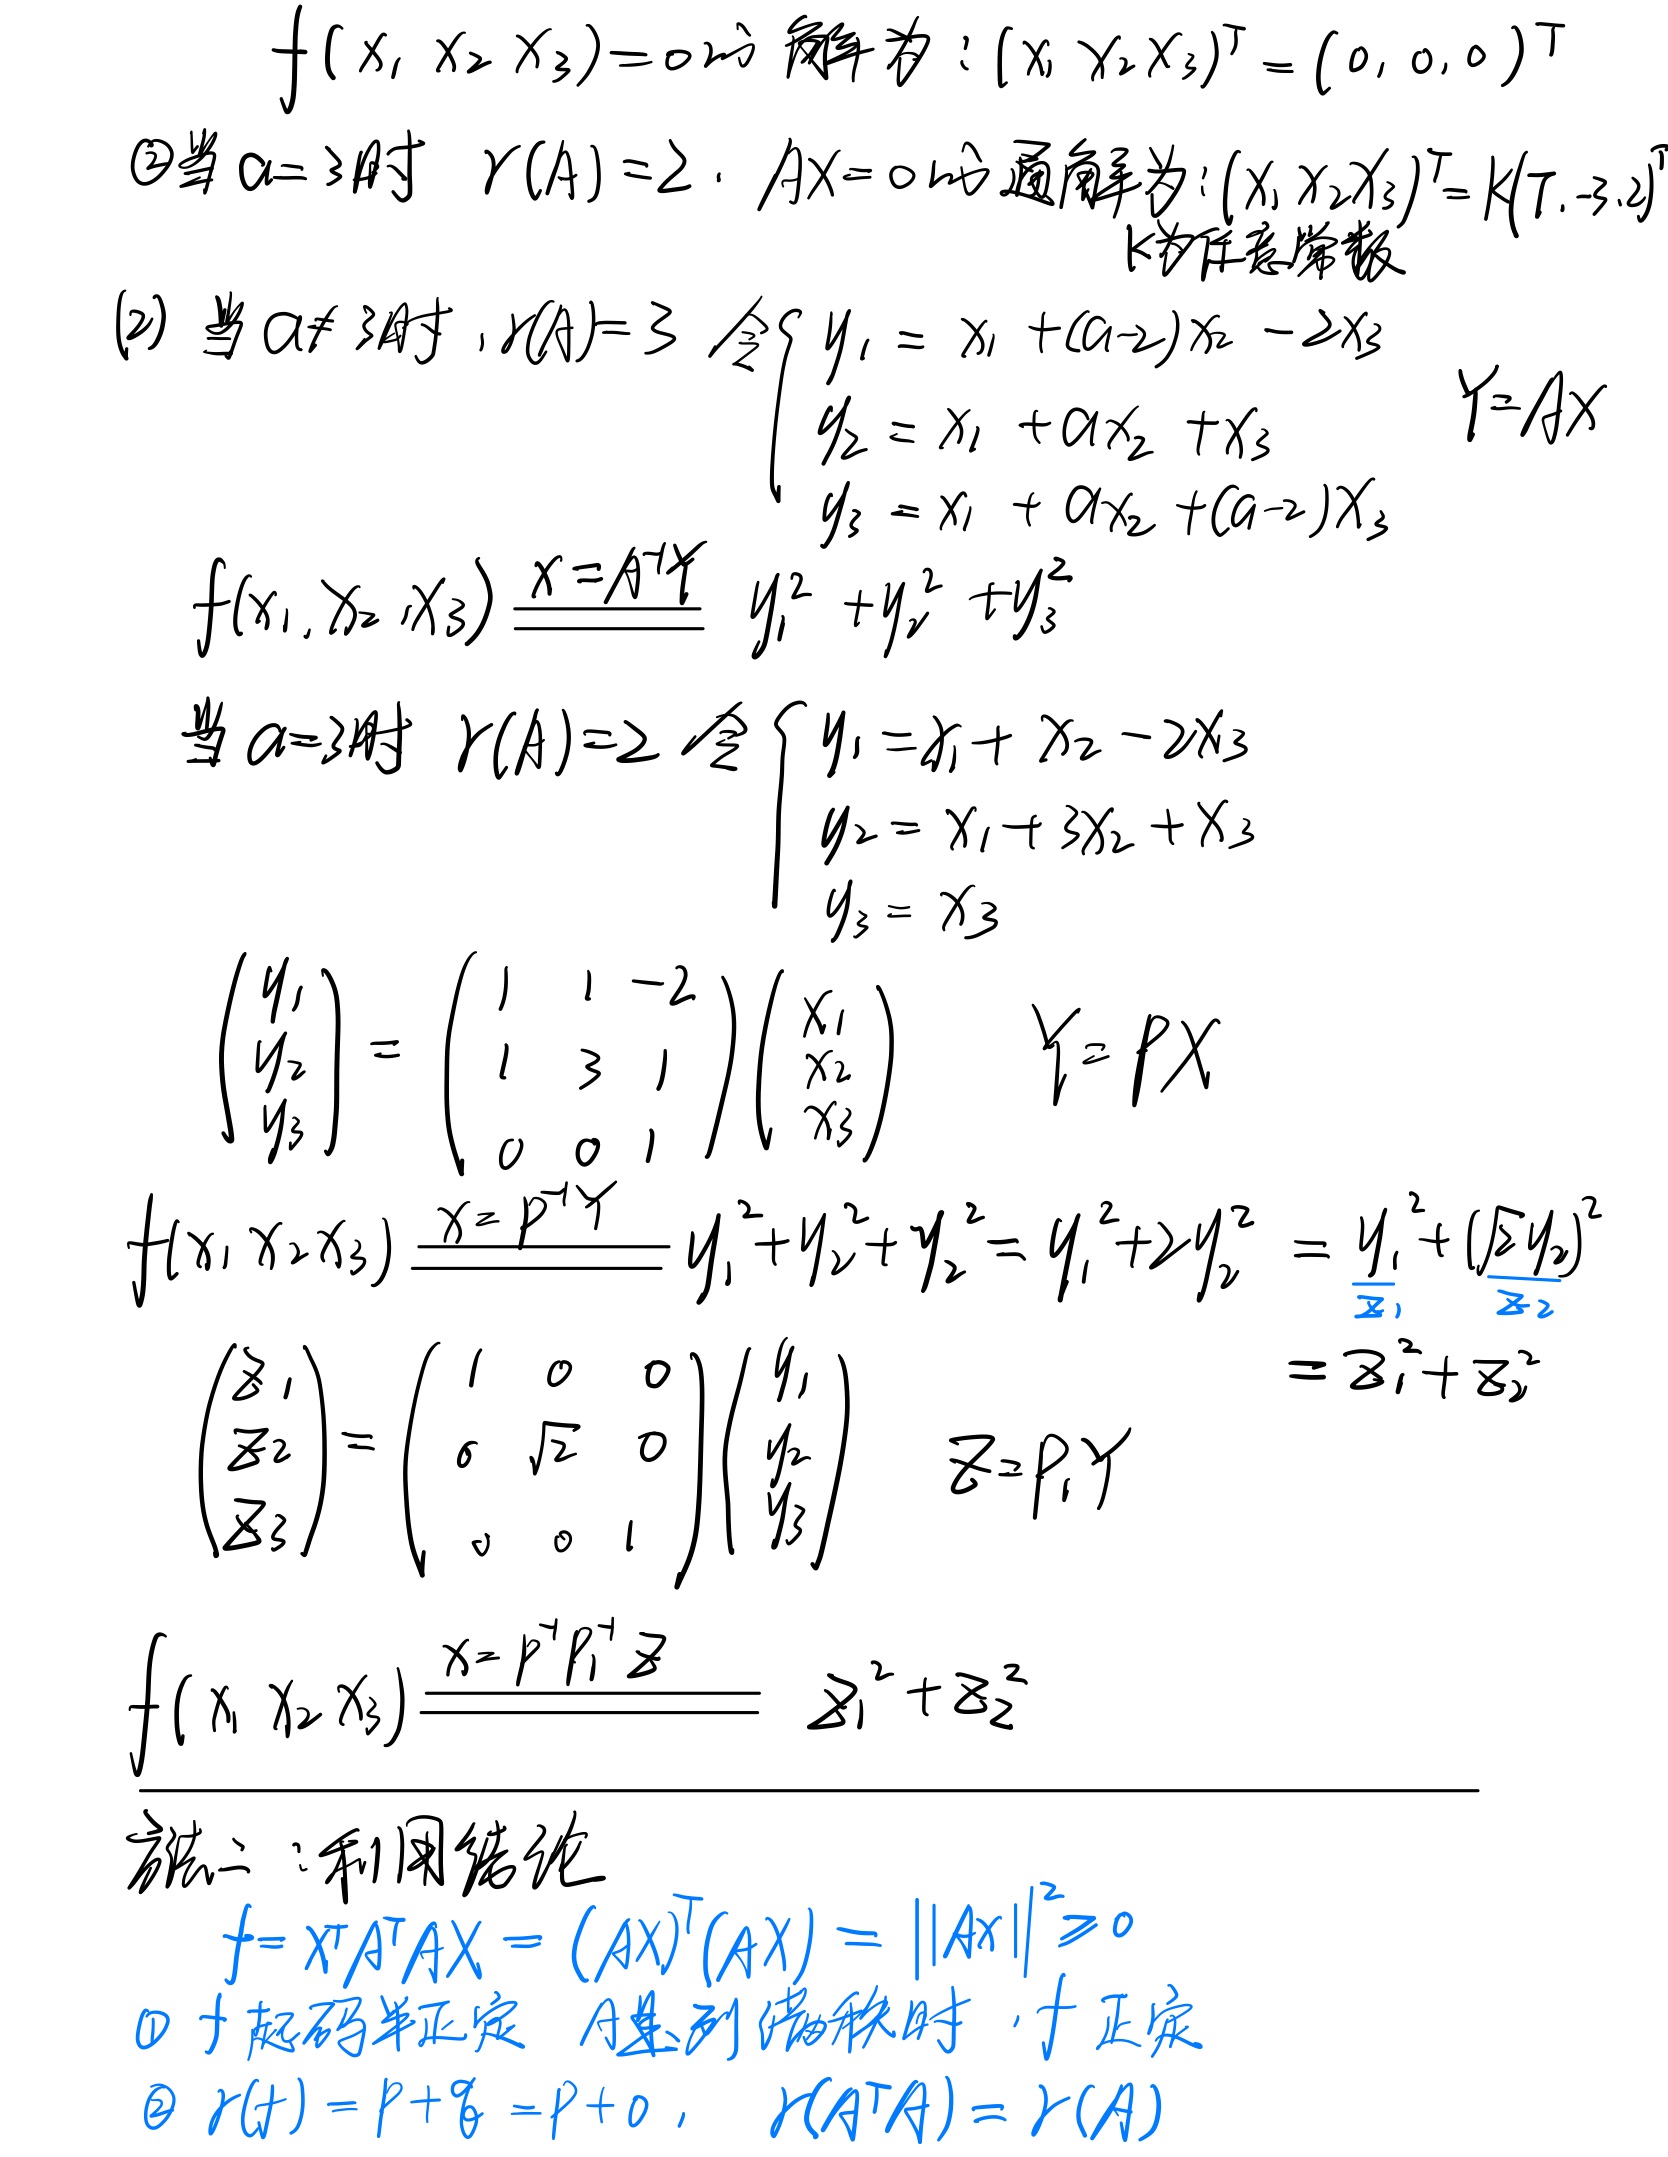 f(x₁ x₂ x₃)=0的解为:(x₁ x₂ x₃)ᵀ=(0,0,0)ᵀ
②当a=3时 r(A)=2. AX=0的通解为:(x₁ x₂ x₃)ᵀ=k(7,-3,2)ᵀ
k为任意常数
(2) 当a≠3时,r(A)=3 令{y₁ = x₁ +(a-2)x₂ -2x₃
y₂ = x₁ +ax₂ +x₃ Y=AX
y₃ = x₁ + ax₂ +(a-2)x₃
f(x₁,x₂,x₃) x=A⁻¹Y y₁² +y₂² +y₃²
当a=3时 r(A)=2 令{y₁ =x₁+ x₂ -2x₃
y₂ = x₁+3x₂+x₃
y₃ = x₃
(y₁ y₂ y₃) = (1 1 -2
1 3 1
0 0 1)(x₁ x₂ x₃) Y=PX
f(x₁ x₂ x₃) x=P⁻¹Y y₁²+y₂²+y₂²=y₁²+2y₂² = y₁²+(√2y₂)²
z₁ z₂
= z₁²+z₂²
(z₁ z₂ z₃) = (1 0 0
0 √2 0
0 0 1)(y₁ y₂ y₃) Z=P₁Y
f(x₁ x₂ x₃) x=P⁻¹P₁⁻¹Z z₁²+z₂²
方法二:利用结论
f=XᵀAᵀAX=(AX)ᵀ(AX)=||AX||²≥0
① f起码半正定 A是列满秩时,f正定
② r(f)=p+q=p+0, r(AᵀA)=r(A)